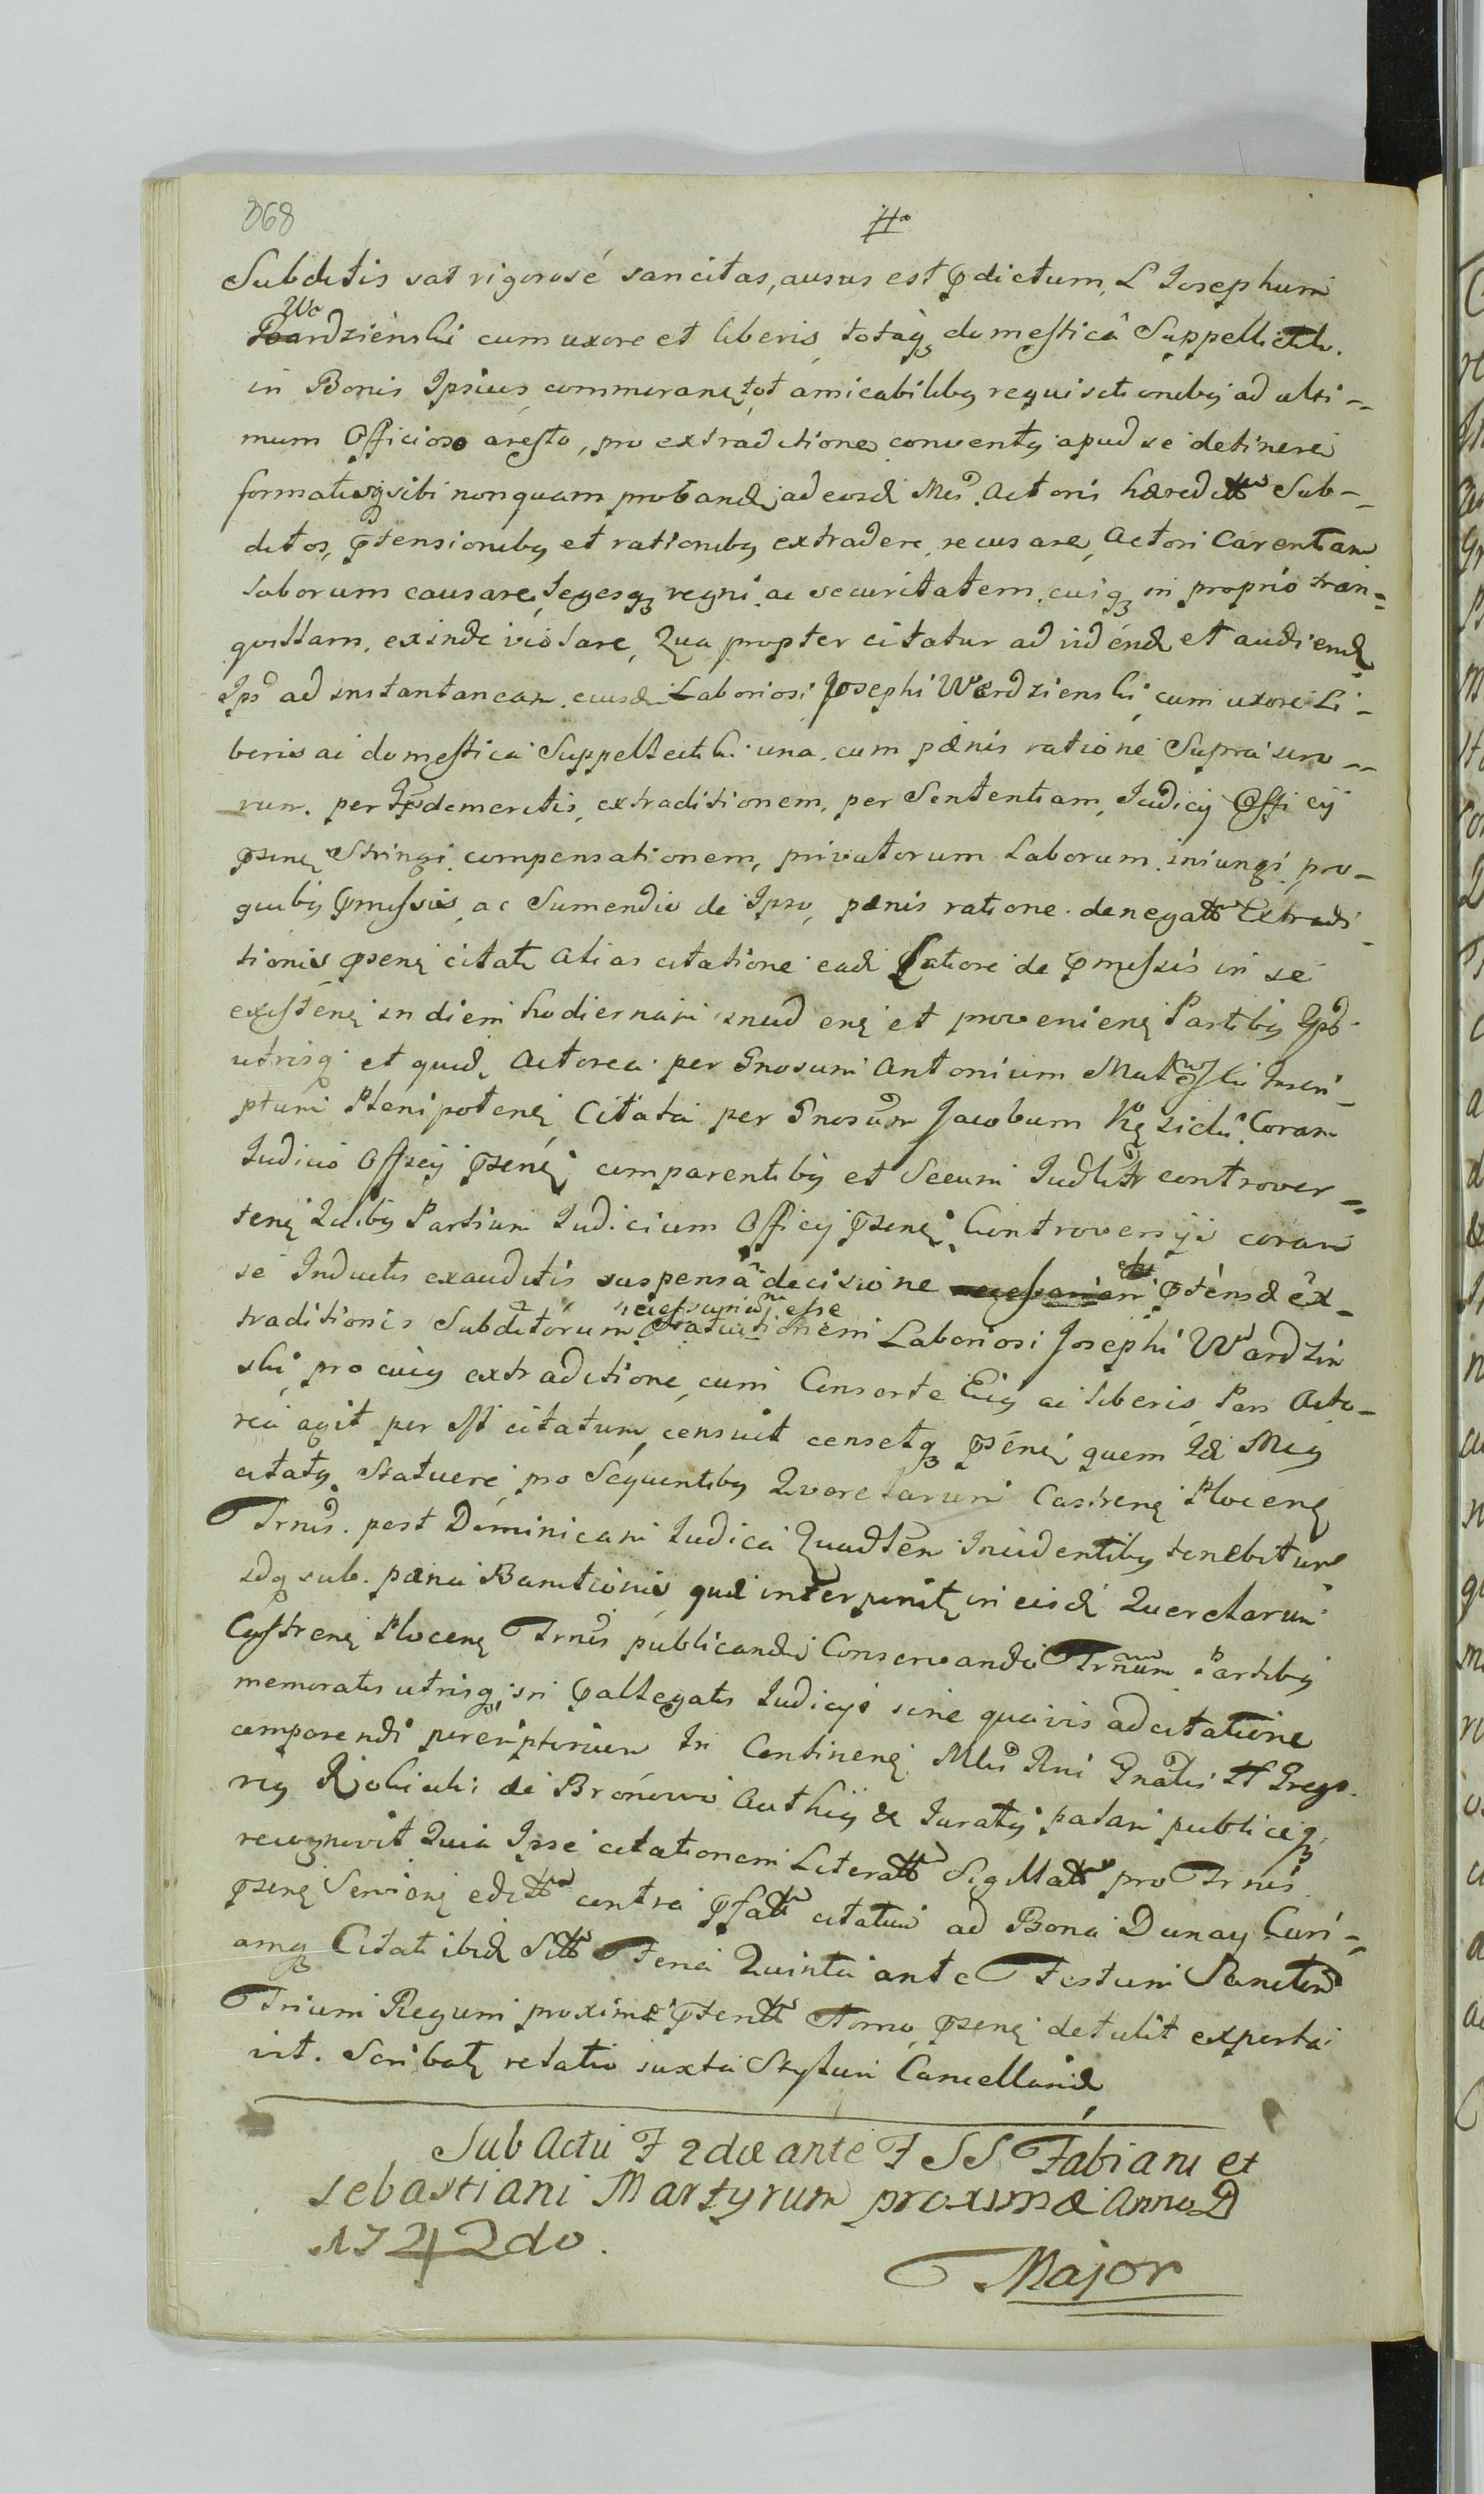 368
Subditis sat rigorosé sancitas, ausus est p̄dictum, L Josephum
Wa
Wardzieński cum uxore et liberis, totaq3 domesticâ Suppellectili.
in Bonis Ipsius commoranē tot amicabiliby requisitioniby ad ulti-
mum Officioso aresto, pro extraditione conventy apud se detinere
sibi nonquam proband ad eosd Mei Actoris hæreditt Sub-
ditos, p̄tensioniby et rationiby extradere recusare, Actori Carentiam
Laborum causare, Legesq3 regni ac securitatem cuiq3 in proprio tran=
quillam, exinde violare, Qua propter citatur ad vidend et audiend
Ips ad instantaneam eiusd Laboriosi Josephi Wardzienski cum uxore Li-
beris ac domestica Suppellectili una cum pænis ratione Supra
rum. per demeritis, extraditionem, per Sententiam, Judicij Officij
p̄senē Stringi compensationem, privatorum Laborum iniungi pro-
quiby p̄missis ac Sumendis de Ipso, pænis ratione denegatt Extradi-
tionis p̄senē citati Alias citatione ead Latiore de p̄missis in se
existenē in diem hodiernam incidenē et provenienē Partiby Ipsis
utrisq et quid, Actorea per Gnosum Antonium Inscri-
ptum Plenipotenē Citata per Gnosum Jacobum Coram
Iudicio Officij p̄senē comparentiby et Secum Judltr controver=
tenē Quiby Partium Judicium Officij p̄senē Controversijs coram
se Inductis exauditis suspensâ decisione necessariam p̄tensæ ex-
necessariam esse
traditionis Subditorum Statuitionem Laboriosi Josephi Wardzin
ski pro cuiy extraditione cum Consorte Eiy ac liberis Pars Acto-
rea agit per citatum censuit censetq3 p̄senē quem Md Mcy
citaty Statuere pro Sequentiby Querelarum Castrenē Plocenē
Trnis. post Dominicam Iudica Quadlen Incidentiby tenebitur
Idq sub pæna Banitionis quæ interponitr in eisd Querelarum
Castrenē Plocenē Trnis publicandi Conservando Trnum Partiby
memoratis utrisq in p̄allegatis Iudicijs sine quavis adcitatione
comparendi peremptorium In Continenē Mltris Rni Gnalis Grego
ry de Bronowo Authiy & Juraty palam publiceq3
recognovit Quia Ipse citationem Literatt Sigillatt pro Trnis
p̄senē Servienē editt contra p̄fatt citatum ad Bona Dunay Curi=
amq3 Citati ibid Sitt Feria Quinta ante Festum Sanctorum
Trium Regum proximæ p̄teritt Domo p̄senē detulit exporta
vit. Scribatr relatio juxta Stylum Cancellariæ
Sub Actu F 2dæ ante F SS Fabiani et
Sebastiani Martyrum proximæ Anno D
1742do.
Major